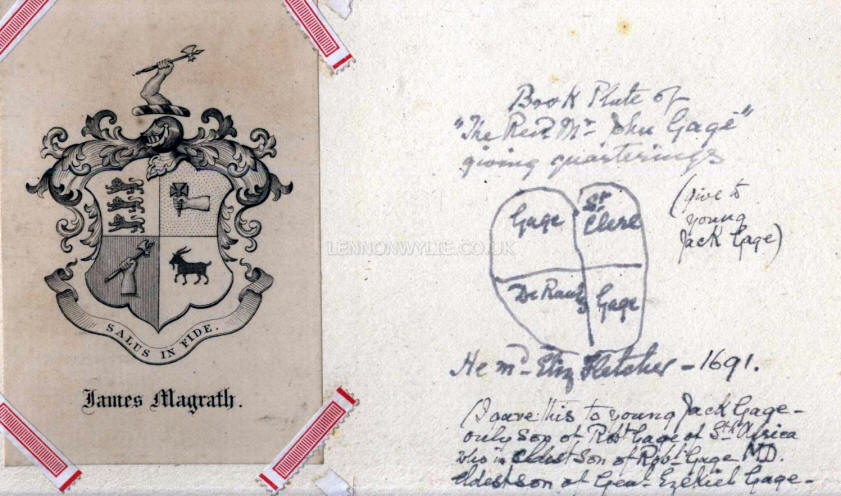 SALUS IN FIDE.
James Magrath.
LENNONWYLIE.CO.UK
Book Plate of
"The Revd. Mr. John Gage"
giving quarterings
Gage
St.
Clere
De Rauly
Gage
(give to
young
Jack Gage)
He md. Eliz Fletcher - 1691.
(I gave this to young Jack Gage -
only son of Robt. Gage of Sth Africa
who is eldest son of Robt. Gage M.D.
eldest son of Genl. Ezekiel Gage -